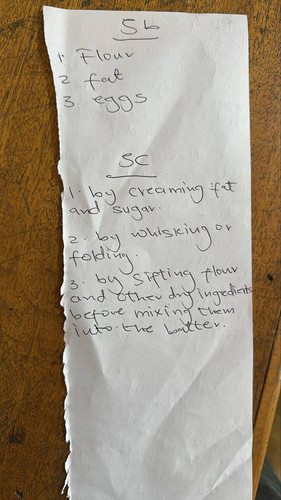 5b
1. Flour
2 fat
3 eggs
5C
1. by creaming fat
and sugar.
2. by whisking or
folding.
3. by sifting flour
and other dry ingredients
before mixing them
into the batter.